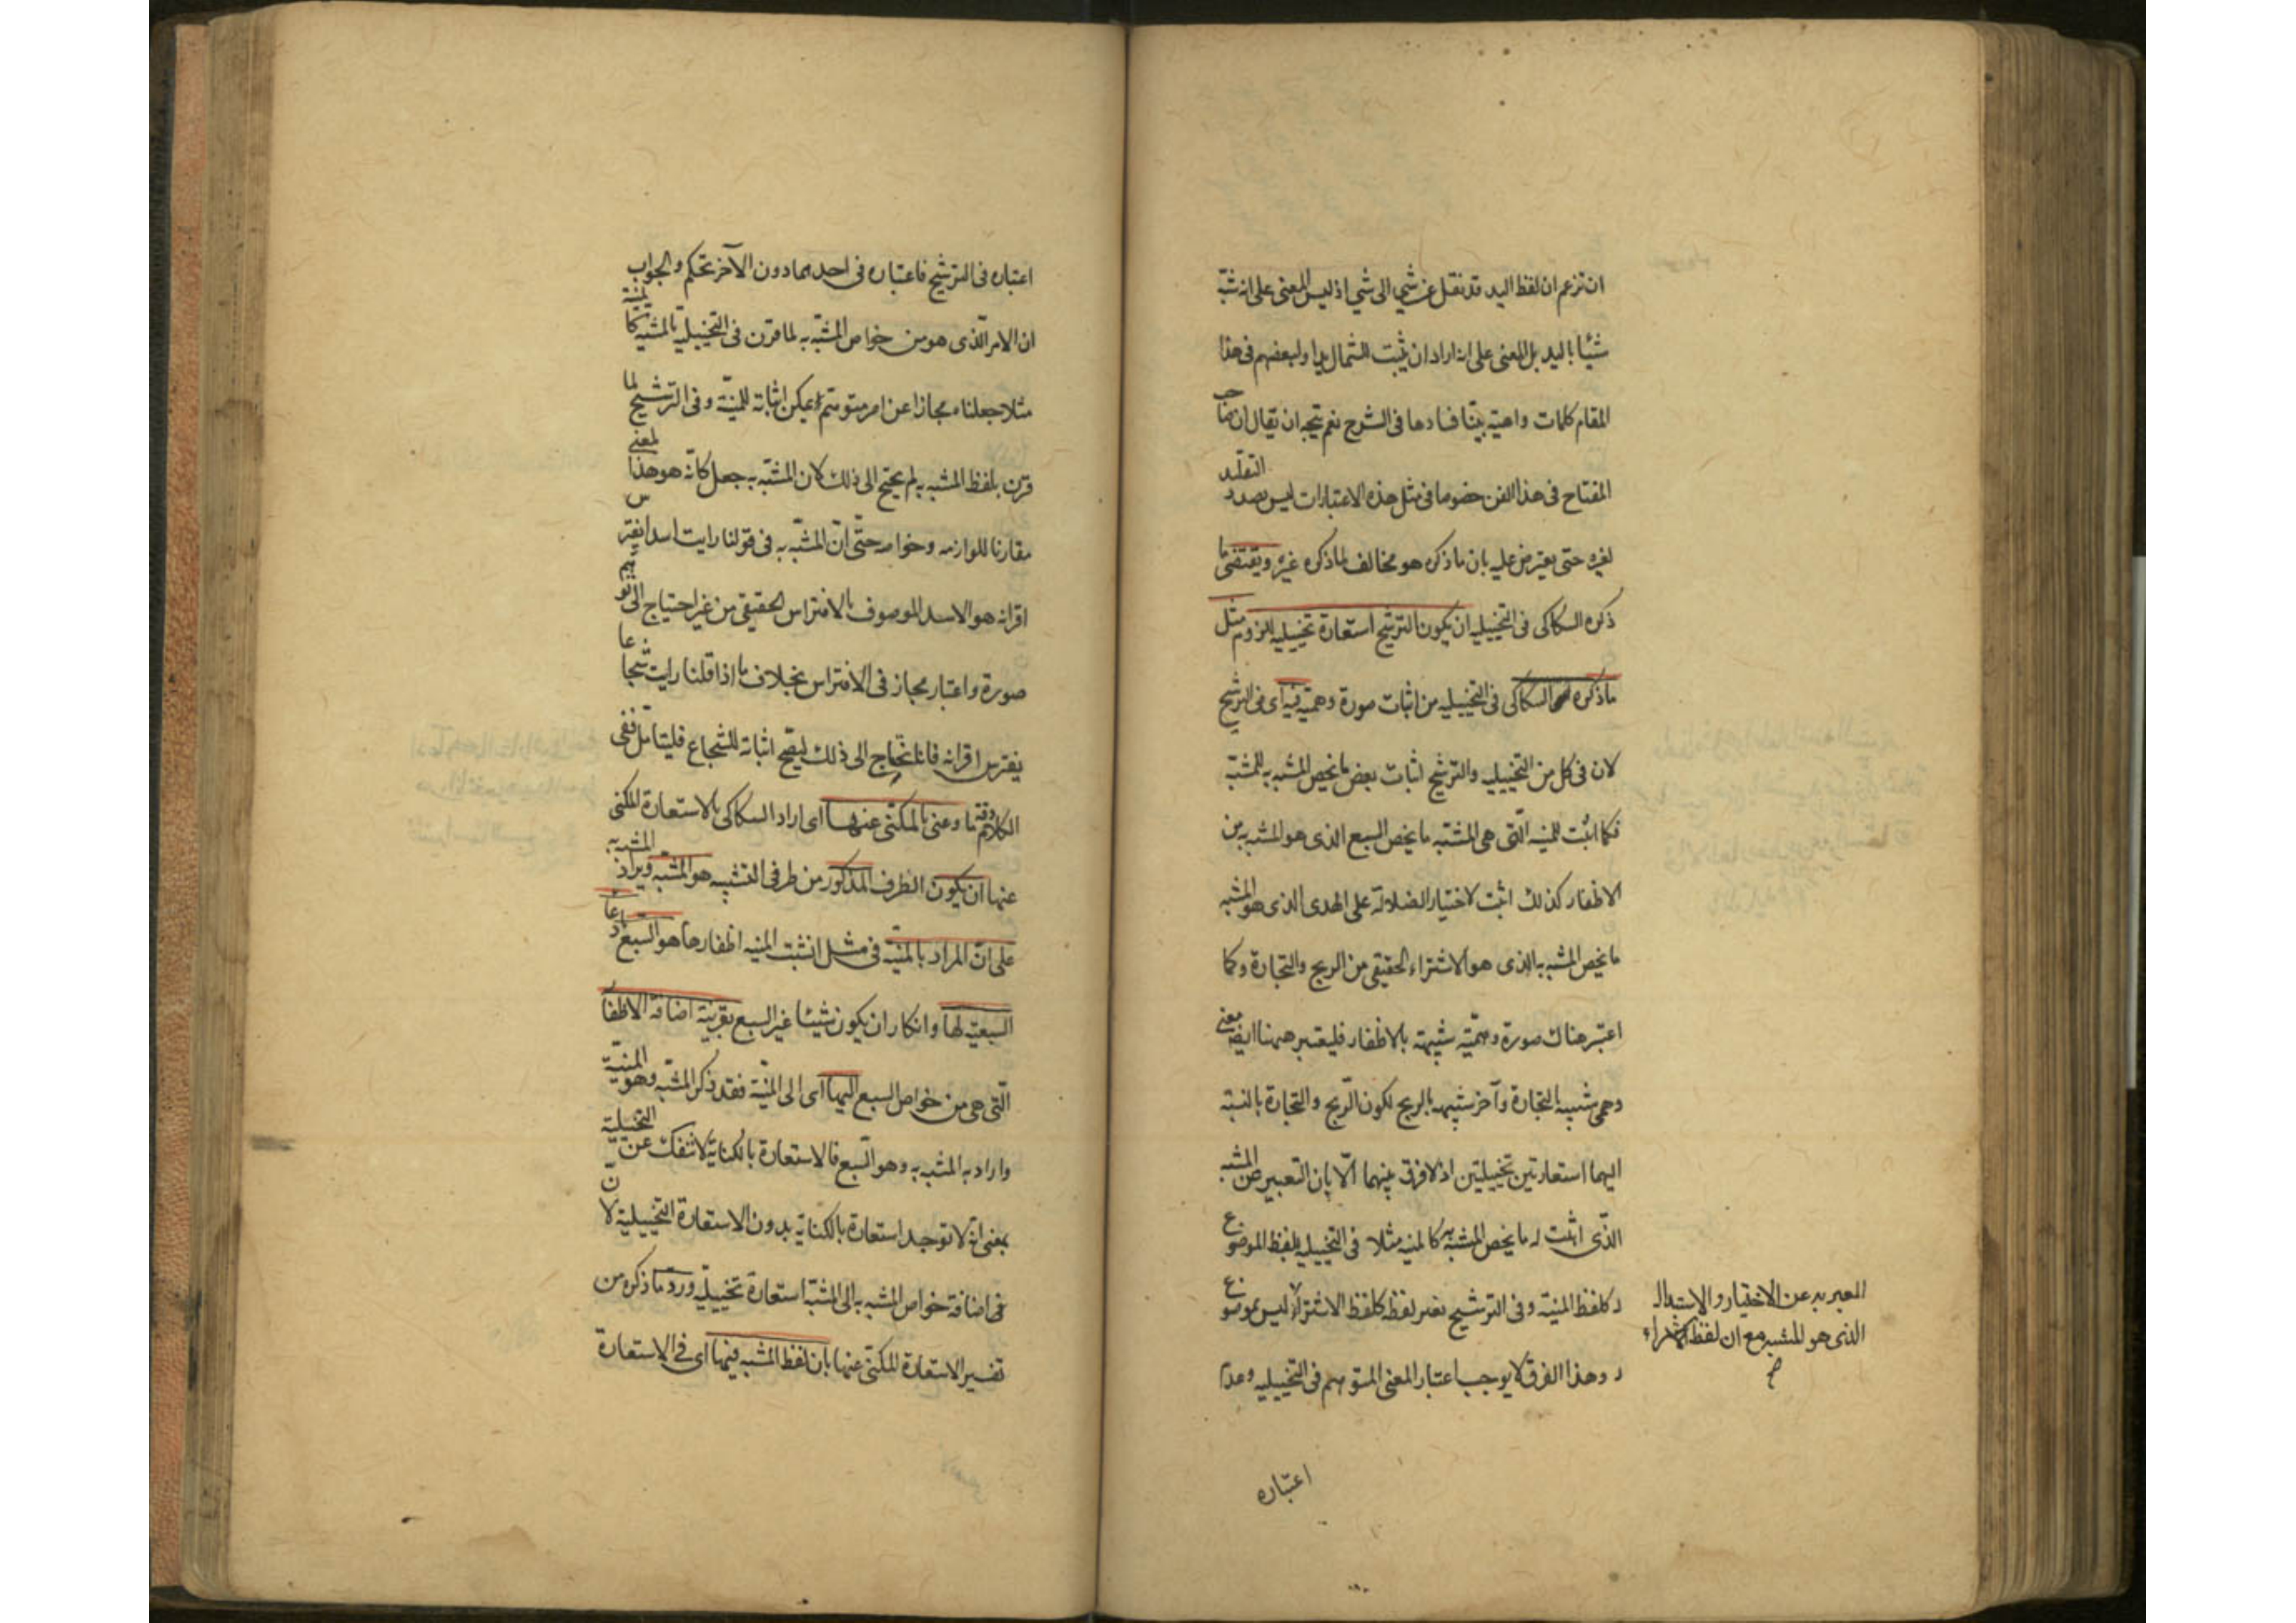 ان تزعم ان لفظ اليد قد نقل عن شي الى شي اذ ليس المعنى على انه شبه
شيئا باليد بل المعنى على انه اراد ان يثبت للشمال يدا ولبعضهم فى هذا
المقام كلمات واهية بينا فسادها فى الشرح نعم يتجه ان يقال ان صاحب
المفتاح فى هذا الفن خصوصا فى مثل هذه الاعتبارات ليس بصدد التقليد
لغيره حتى يعترض عليه بان ما ذكره هو مخالف لما ذكره غيره ويقتضى ما
ذكره السكاكى فى التخييليه ان يكون الترشيح استعارة تخييليه للزوم مثل
ما ذكره السكاكى فى التخييليه من اثبات صورة وهمية فيه اى فى الترشيح
لان فى كل من التخييليه والترشيح اثبات بعض ما يخص المشبه به للمشبه
فكما اثبت للمنيه التى هى المشبه ما يخص السبع الذى هو المشبه به من
الاظفار كذلك اثبت لاختيار الضلالة على الهدى الذى هو المشبه
ما يخص المشبه به الذى هو الاشتراء الحقيقى من الربح والتجارة وكما
اعتبر هناك صورة وهمية شبيهة بالاظفار فليعتبر ههنا ايضا معنى
وهمى شبيه بالتجارة وآخر شبيهه بالربح لكون الربح والتجارة بالنسبة
اليهما استعارتين تخييليتين اذ لا فرق بينهما الا بان التعبير عن المشبه
الذى اثبت له ما يخص المشبه به كالمنيه مثلا فى التخييليه بلفظ الموضوع
له كلفظ المنية وفى الترشيح بغير لفظه كلفظ الاشتراء ليس بموضوع
له وهذا الفرق لا يوجب اعتبار المعنى المتوهم فى التخييليه وعدم
المعبر به عن الاختيار والاستبدال
الذى هو المشبه مع ان لفظ الاشتراء
صح
اعتباره
اعتباره فى الترشيح فاعتباره فى احدهما دون الآخر تحكم والجواب
ان الامر الذى هو من خواص المشبه به لما قرن فى التخييلية بالمشبه كالمنية
مثلا جعلناه مجازا عن امر متوهم يمكن اثباته للمنية وفى الترشيح لما
قرن بلفظ المشبه به لم يحتج الى ذلك لان المشبه به جعل كانه هو هذا المعنى
مقارنا للوازمه وخواصه حتى ان المشبه به فى قولنا رايت اسدا يفترس
اقرانه هو الاسد الموصوف بالافتراس الحقيقى من غير احتياج الى توهم
صورة واعتبار مجاز فى الافتراس بخلاف ما اذا قلنا رايت شجاعا
يفترس اقرانه فانا نحتاج الى ذلك ليصح اثباته للشجاع فليتامل ففى
الكلام دقة ما وعنى بالمكنى عنها اى اراد السكاكى بالاستعارة المكنى
عنها ان يكون الطرف المذكور من طرفى التشبيه هو المشبه ويراد المشبه به
على ان المراد بالمنية فى مثل انشبت المنيه اظفارها هو السبع بادعاء
السبعية لها وانكار ان يكون شيئا غير السبع بقرينة اضافة الاظفار
التى هى من خواص السبع اليها اى الى المنية فقد ذكر المشبه وهو المنية
واراد به المشبه به وهو السبع فالاستعارة بالكناية لا تنفك عن التخييلية
بمعنى انه لا توجد استعارة بالكناية بدون الاستعارة التخييلية لان
فى اضافة خواص المشبه به الى المشبه استعارة تخييلية ورد ما ذكره من
تفسير الاستعارة المكنى عنها بان لفظ المشبه فيها اى فى الاستعارة